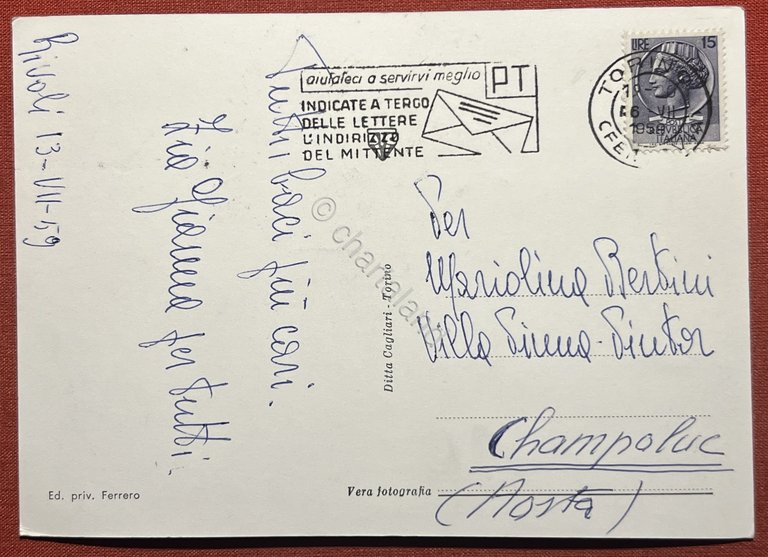 Rivoli 13-VII-59
Tanti baci più cari.
Zia Gianna per tutti.
aiutateci a servirvi meglio
PT
INDICATE A TERGO
DELLE LETTERE
L'INDIRIZZO
DEL MITTENTE
LIRE 15
TORINO
VII
CFER
REPUBBLICA
ITALIANA
Per
Mariolina Bertini
Villa Pinna-Pintor
Champoluc
(Aosta)
Ditta Cagliari - Torino
Ed. priv. Ferrero
Vera fotografia
© chartaland